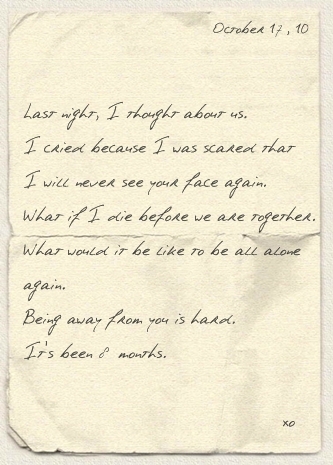 October 17, 10
Last night, I thought about us.
I cried because I was scared that
I will never see your face again.
What if I die before we are together.
What would it be like to be all alone
again.
Being away from you is hard.
It's been 8 months.
xo